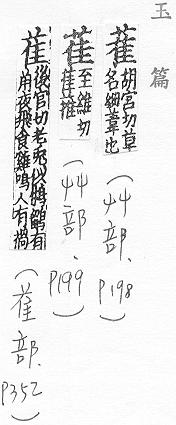 玉篇
萑 胡官切草
名細葦也
(艸部、P198)
萑 至維切
萑蓷
(艸部、P199)
萑 後官切老兎似鴟鵂有
角夜飛食雞鳴人有禍
(萑部、P352)